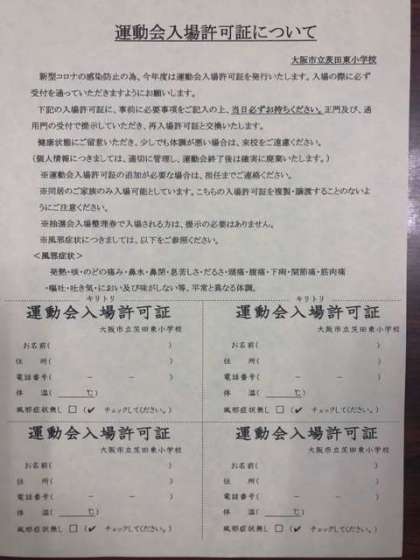 運動会入場許可証について
大阪市立茨田東小学校
新型コロナの感染防止の為、今年度は運動会入場許可証を発行いたします。入場の際に必ず
受付を通っていただきますようにお願いします。
下記の入場許可証に、事前に必要事項をご記入の上、当日必ずお持ちください。正門及び、通
用門の受付で提示していただき、再入場許可証と交換いたします。
健康状態にご留意いただき、少しでも体調が悪い場合は、来校をご遠慮ください。
(個人情報につきましては、適切に管理し、運動会終了後は確実に廃棄いたします。)
※運動会入場許可証の追加が必要な場合は、担任までご連絡ください。
※同居のご家族のみ入場可能としています。こちらの入場許可証を複製・譲渡することのないよ
うにご注意ください。
※抽選会入場整理券で入場される方は、提示の必要はありません。
※風邪症状につきましては、以下をご参照ください。
<風邪症状>
発熱・咳・のどの痛み・鼻水・鼻閉・息苦しさ・だるさ・頭痛・腹痛・下痢・関節痛・筋肉痛
・嘔吐・吐き気・におい及び味がしない等、平常と異なる体調。
キリトリ キリトリ
運動会入場許可証
大阪市立茨田東小学校
お名前( )
住 所( )
電話番号( － － )
体 温( ℃)
風邪症状無し □ (✔ チェックしてください。)
運動会入場許可証
大阪市立茨田東小学校
お名前( )
住 所( )
電話番号( － － )
体 温( ℃)
風邪症状無し □ (✔ チェックしてください。)
運動会入場許可証
大阪市立茨田東小学校
お名前( )
住 所( )
電話番号( － － )
体 温( ℃)
風邪症状無し □ (✔ チェックしてください。)
運動会入場許可証
大阪市立茨田東小学校
お名前( )
住 所( )
電話番号( － － )
体 温( ℃)
風邪症状無し □ (✔ チェックしてください。)